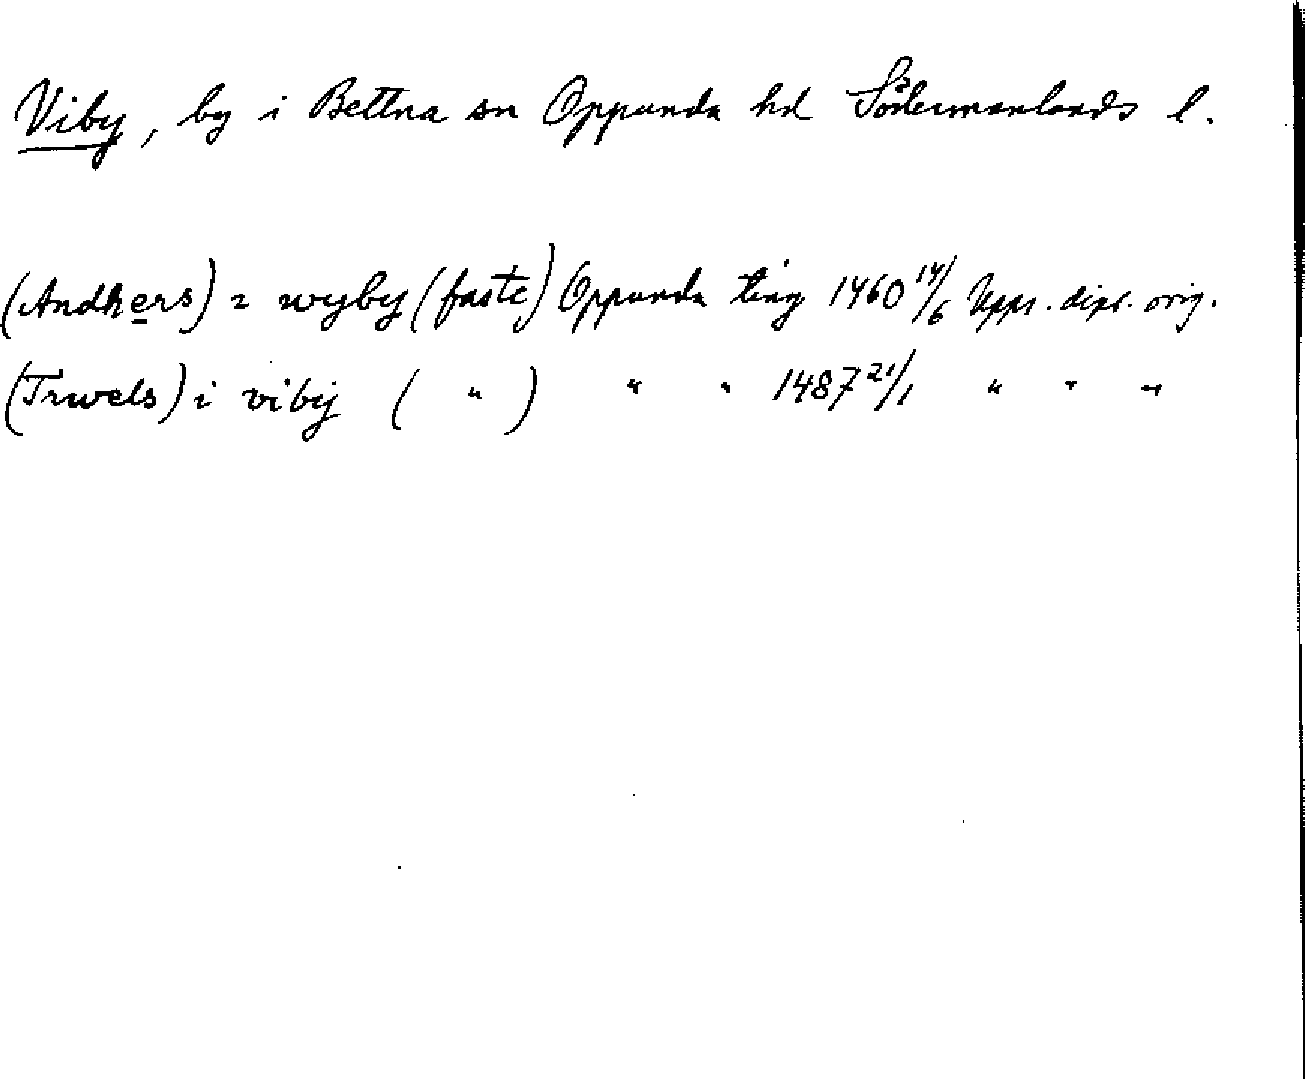 Viby, by i Bettna sn Oppunda hd Södermanlands l.
(Andhers) i wyby (faste) Oppunda ting 1460 14/6 Upps. dipl. orig.
(Trwels) i viby ( " ) " " 1487 21/1 " " "